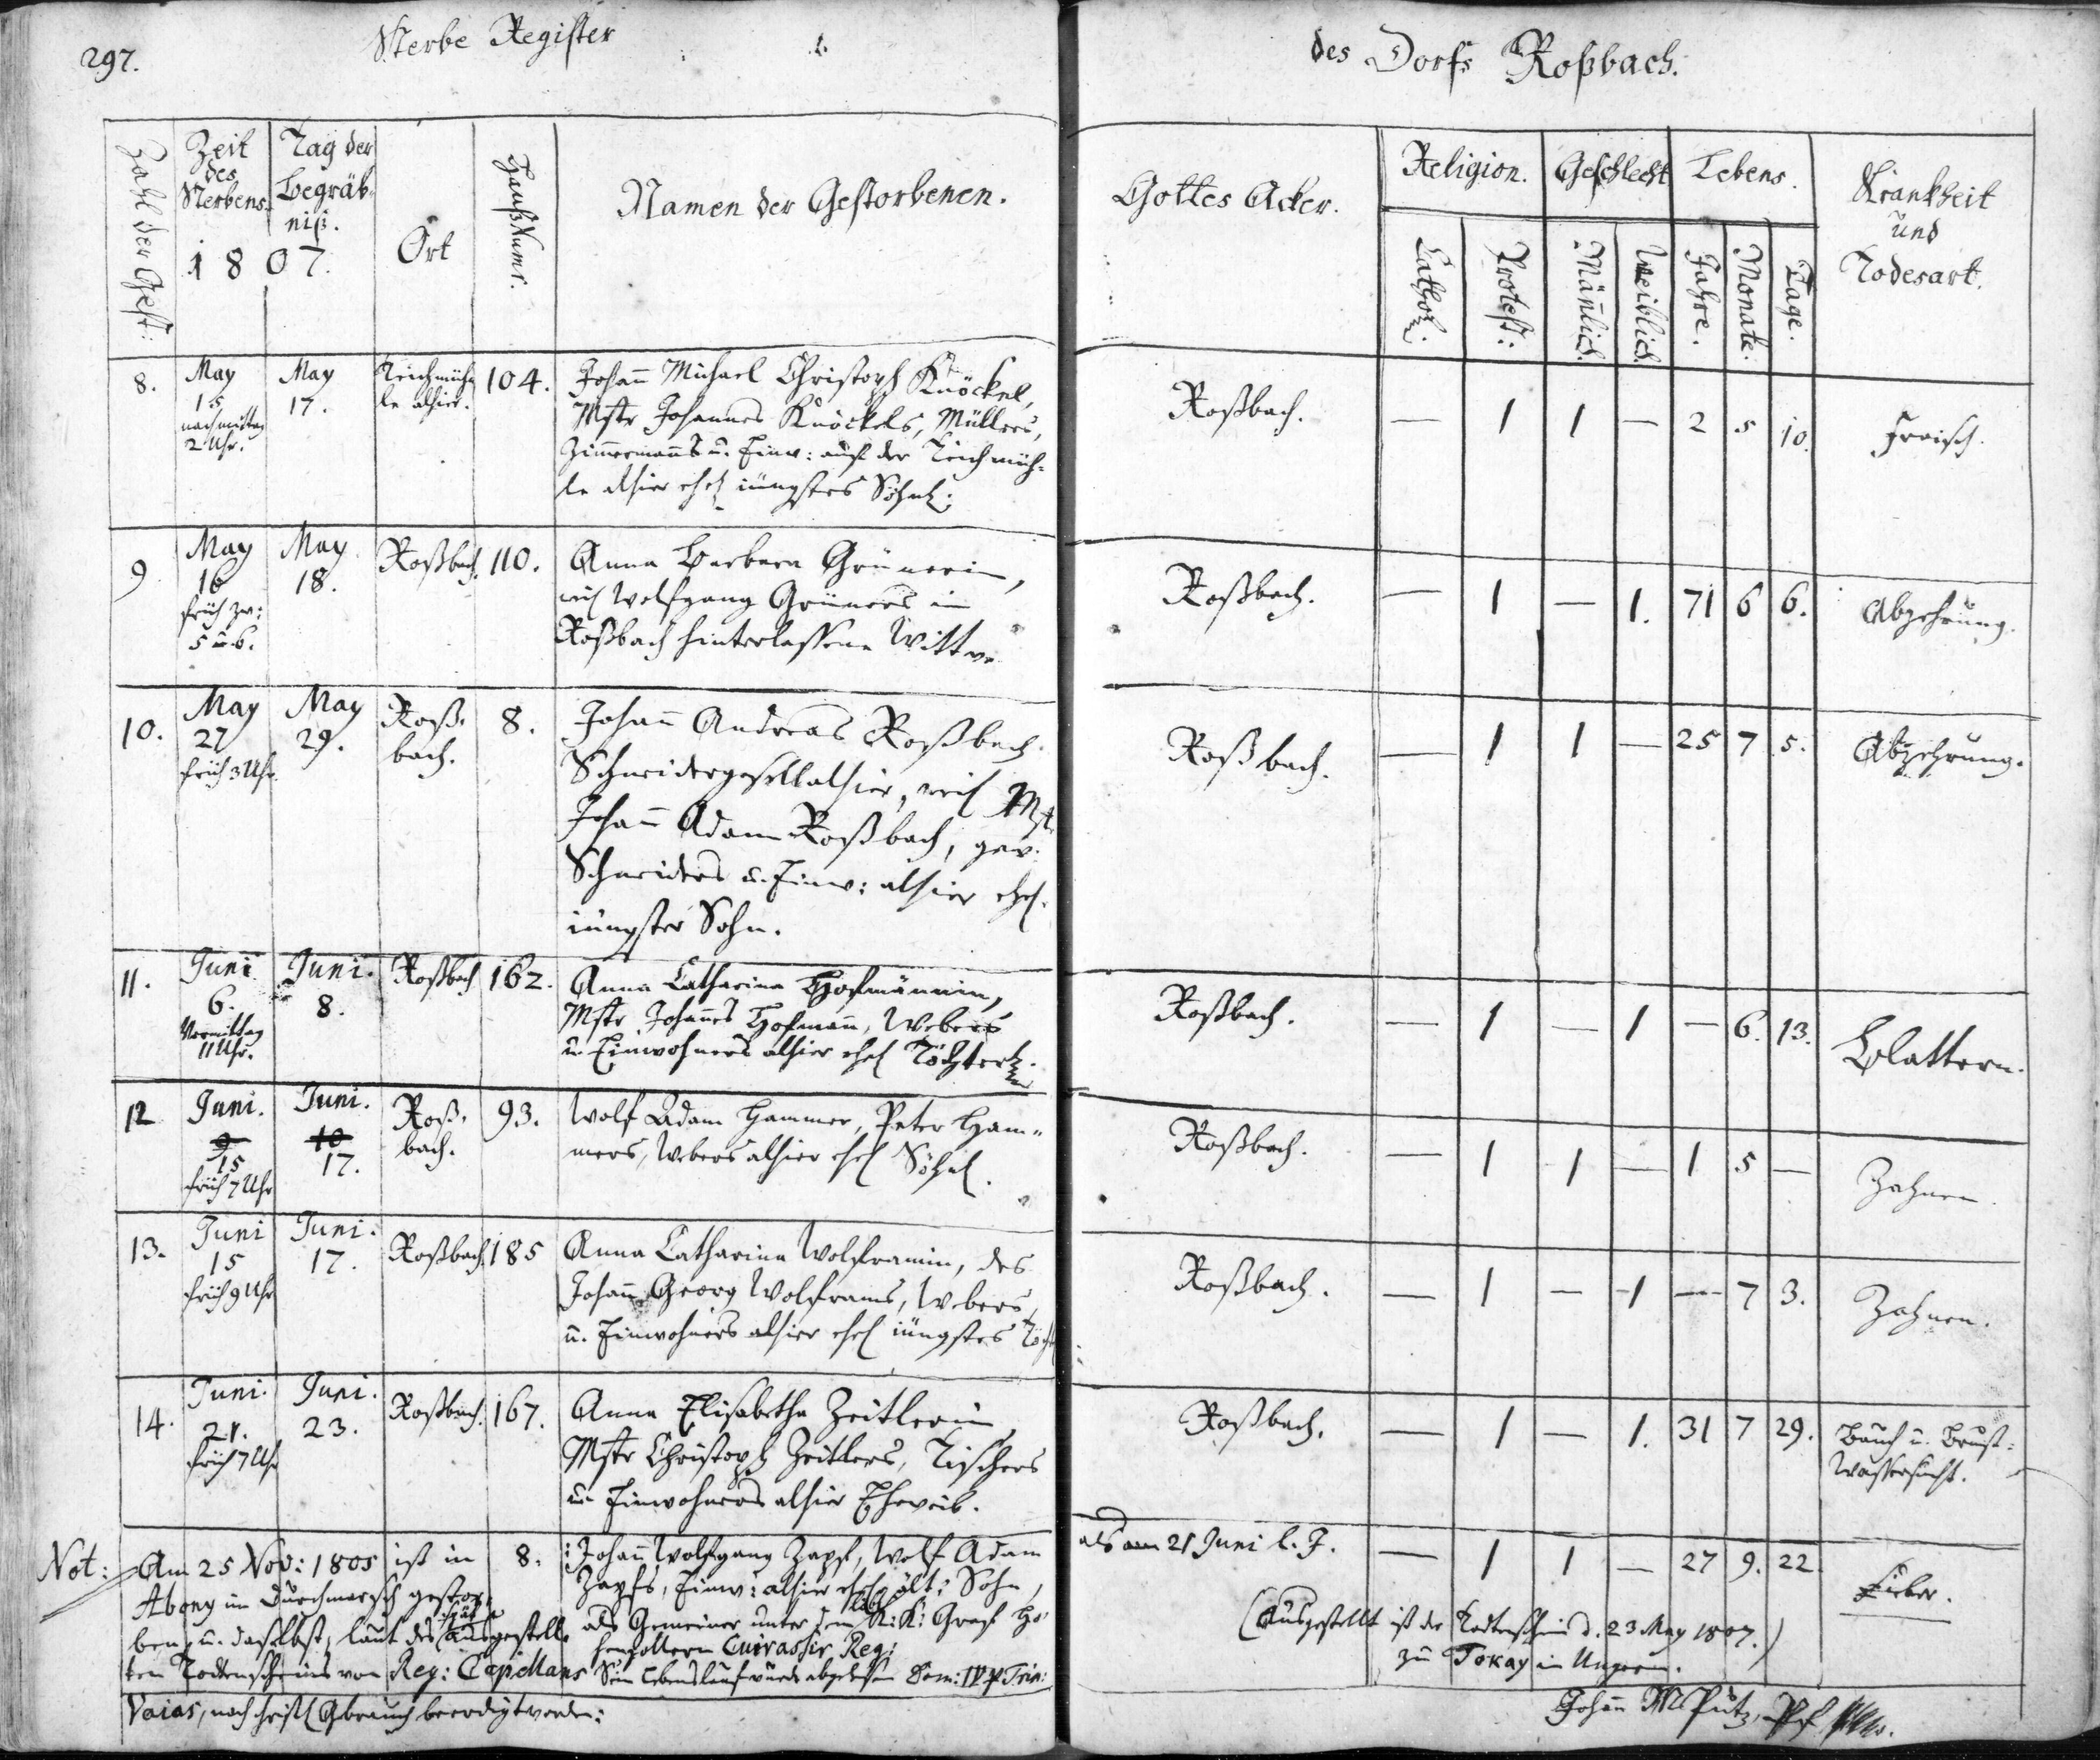 297.
Sterbe Register
des Dorfs Roßbach.
Zahl der Gest:
Zeit des Sterbens
Tag der Begräbniß.
1807.
Ort
Hauß Numr.
Namen der Gestorbenen.
Gottes Acker.
Religion.
Cathol.
Protest:
Geschlecht
Mañlich.
Weiblich.
Lebens.
Jahre.
Monate.
Tage.
Krankheit
und
Todesart.
8.
May
15
nachmittag
2 Uhr.
May
17.
Teichmüh
le alhier.
104.
Johañ Michael Christoph Knöckel,
Mstr Johannes Knöckels, Müllers,
Zimermanns u. Einw: auf der Teichmüh=
le alhier ehel jüngstes Söhnl:
Roßbach.
— 1 1 — 2 5 10.
Fraisch.
9
May
16
früh zw:
5 u 6.
May
18.
Roßbach.
110.
Anna Barbara Grünerin,
weil Wolfgang Grüners in
Roßbach hinterlassene Wittwe
Roßbach.
— 1 — 1. 71 6 6.
Abzehrung.
10.
May
27
früh 3 Uhr.
May
29.
Roß-
bach.
8.
Johañ Andreas Roßbach.
Schneidergesell alhier, weil Mst.
Johañ Adam Roßbach, gew.
Schneiders u. Einw: alhier ehel.
jüngster Sohn.
Roßbach.
— 1 1 — 25 7 5.
Abzehrung.
11.
Juni
6.
Vormittag
11 Uhr.
Juni.
8.
Roßbach
162.
Anna Catharina Hofmännin,
Mstr Johañes Hofmañ, Webers
u. Einwohners alhier ehel Töchterl.
Roßbach.
— 1 — 1 — 6. 13.
Blattern.
12
Juni.
9
15
früh 7 Uhr
Juni.
10
17.
Roß-
bach.
93.
Wolf Adam Hammer, Peter Ham=
mers, Webers alhier ehel Söhnl.
Roßbach.
— 1 1 — 1 5 —
Zahnen.
13.
Juni
15
früh 9 Uhr
Juni.
17.
Roßbach.
185
Anna Catharina Wolframin, des
Johañ Georg Wolframs, Webers,
u. Einwohners alhier ehel jüngstes Töcht
Roßbach.
— 1 — 1 — 7 3.
Zahnen.
14.
Juni.
21.
früh 7 Uhr
Juni.
23.
Roßbach.
167.
Anna Elisabetha Zeitlerin
Mstr Christoph Zeitlers, Tischers
u. Einwohners alhier Eheweib.
Roßbach.
— 1 — 1. 31 7 29.
Bauch u. Brust=
Wassersucht.
Not:
Am 25 Nov: 1805 ist in
Abony im Durchmarsch gestor
ben, u. daselbst, laut des ausgestell
ten Todtenscheins von Reg: Capellans
Vaias, nach christl Gbrauch beerdigt worden:
8.
Johañ Wolfgang Zapf, Wolf Adam
Zapfs, Einw: alhier ehel ält: Sohn,
als Gemeiner unter dem K: K: Graf Ho
henzollern Cuirassir Reg:
Sein Lebenslauf wurde abgelesen Dom: IV p. Trin:
als am 21 Juni l. J.
— 1 1 — 27 9. 22.
Fieber.
(Ausgestellt ist der Todtenschein d. 23 May 1807.)
zu Tokay in Ungern.
Johañ M Putz, Pf